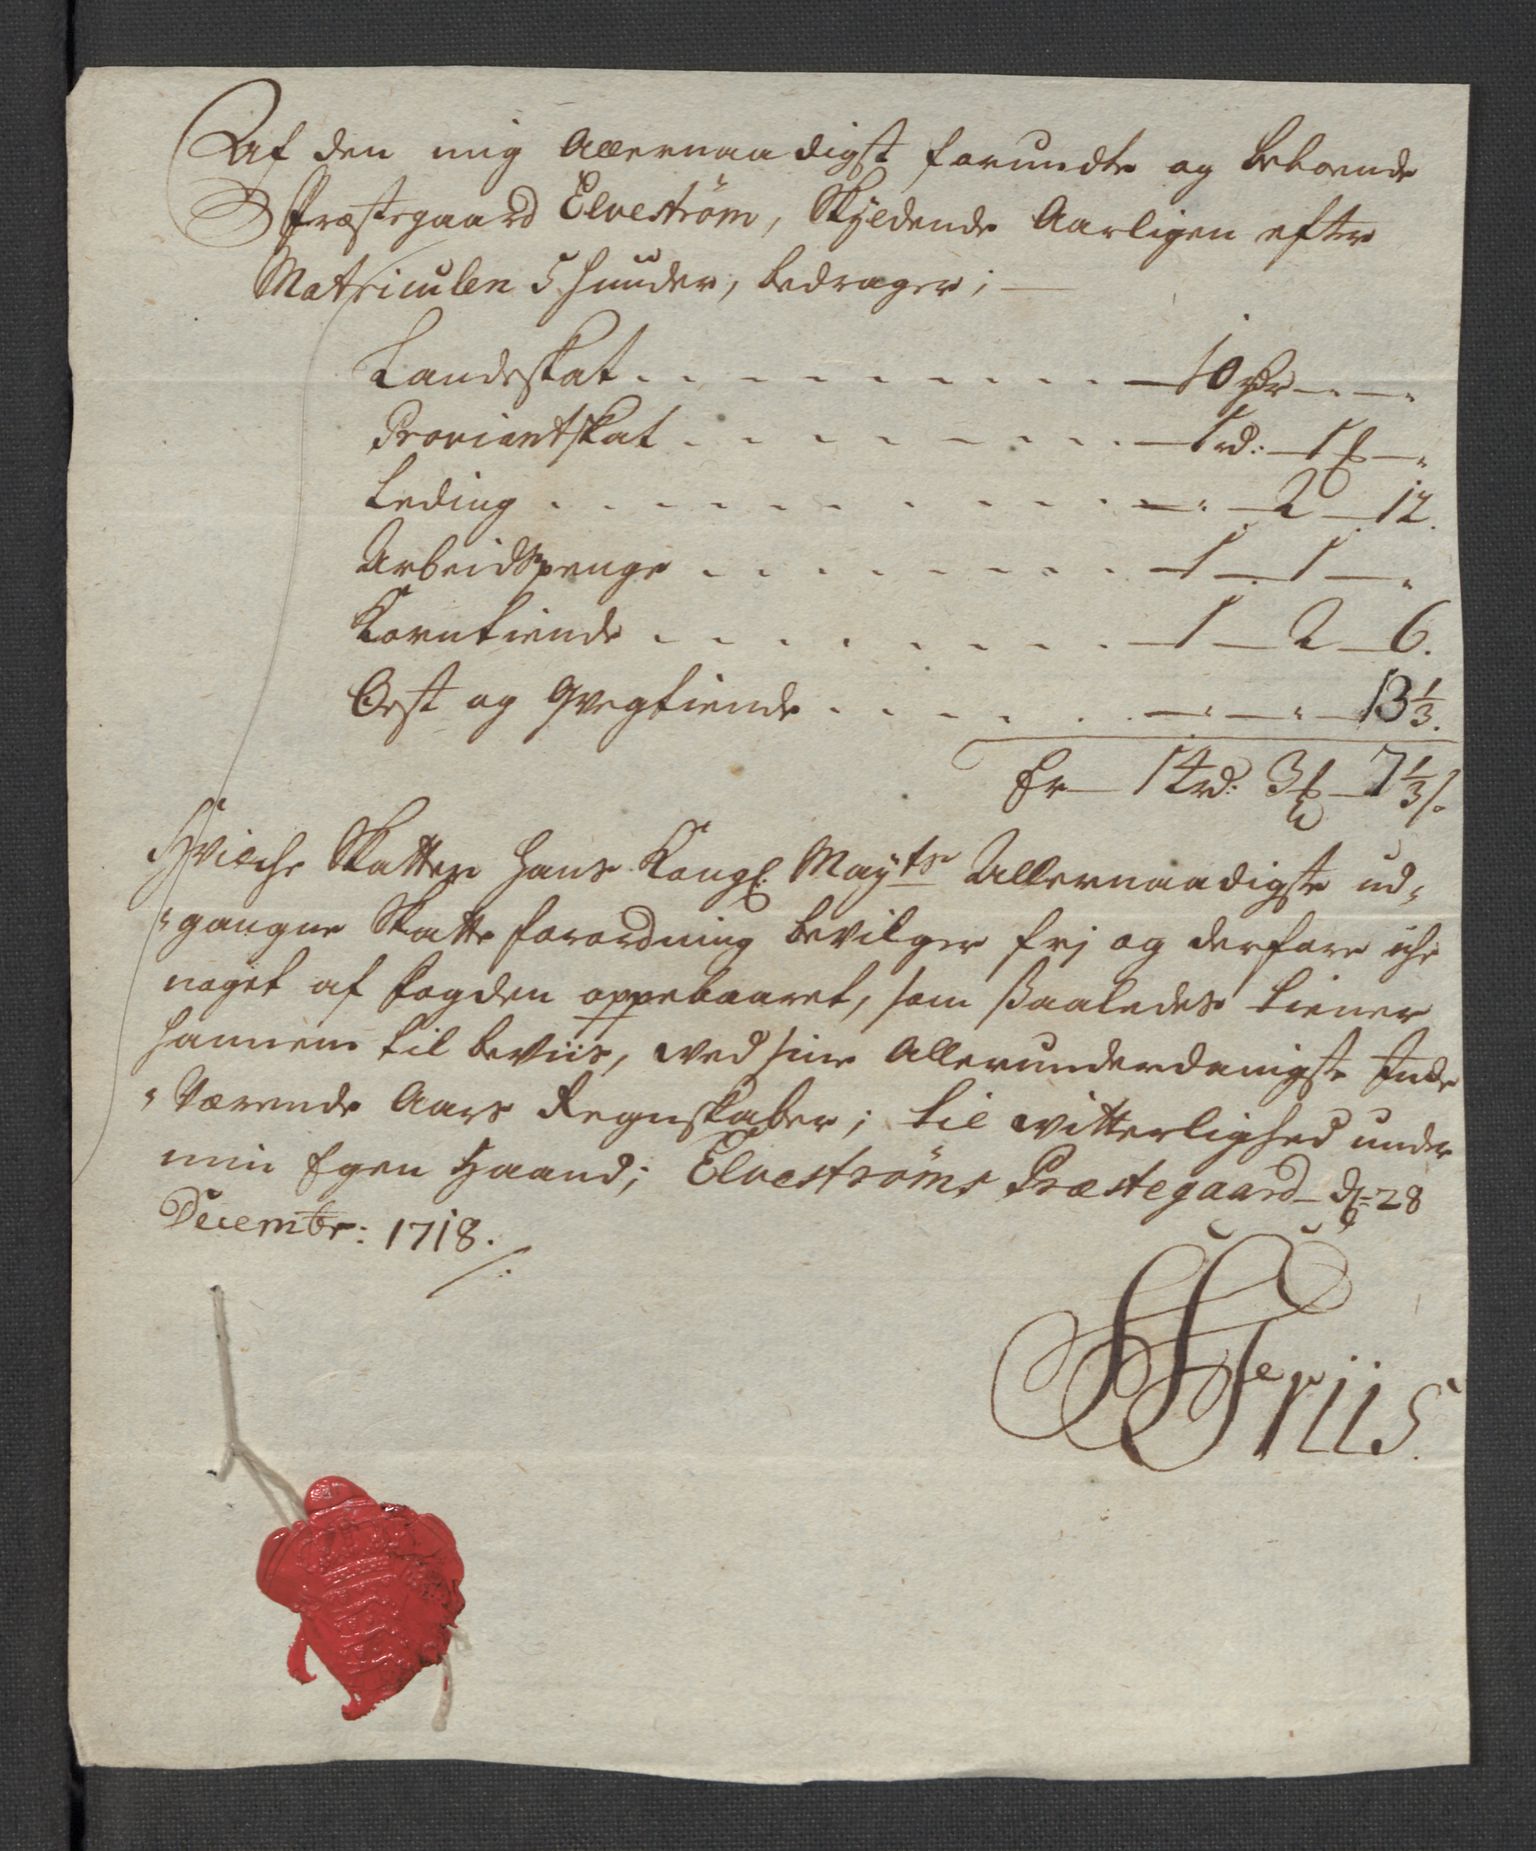 Af den mig Allernaadigst forundte og beboende
Præstegaard Elvestrøm, Skyldende Aarligen efter
Matriculen 5 huuder, bedrager;
Landeskat . . . . . . . . . . 10 rdr — „ — „
Proviantskat . . . . . . . . . 1 rd: — 1 ß — „
Leding . . . . . . . . . . . . — „ — 2 — 12.
Arbeidspenge . . . . . . . . — 1 — 1 — „
Korntiende . . . . . . . . . — 1 — 2 — 6.
Ost og Qvegtiende . . . . . . — „ — „ — 13 1/3.
Er — 14 rd: 3 ß — 7 1/3 s.
Hvilche Skatter Hans Kongl: Mayts Allernaadigste ud„
„gangne Skatte forordning bevilger frj og derfore iche
noget af fogden oppebaaret, som saaledes tiener
hannem til beviis, wed sine Allerunderdanigste Inde
„værende Aars Regnskaber; til witterlighed under
min Egen Haand; Elvestrøms Præstegaard d: 28
Decembr: 1718.
Friis.